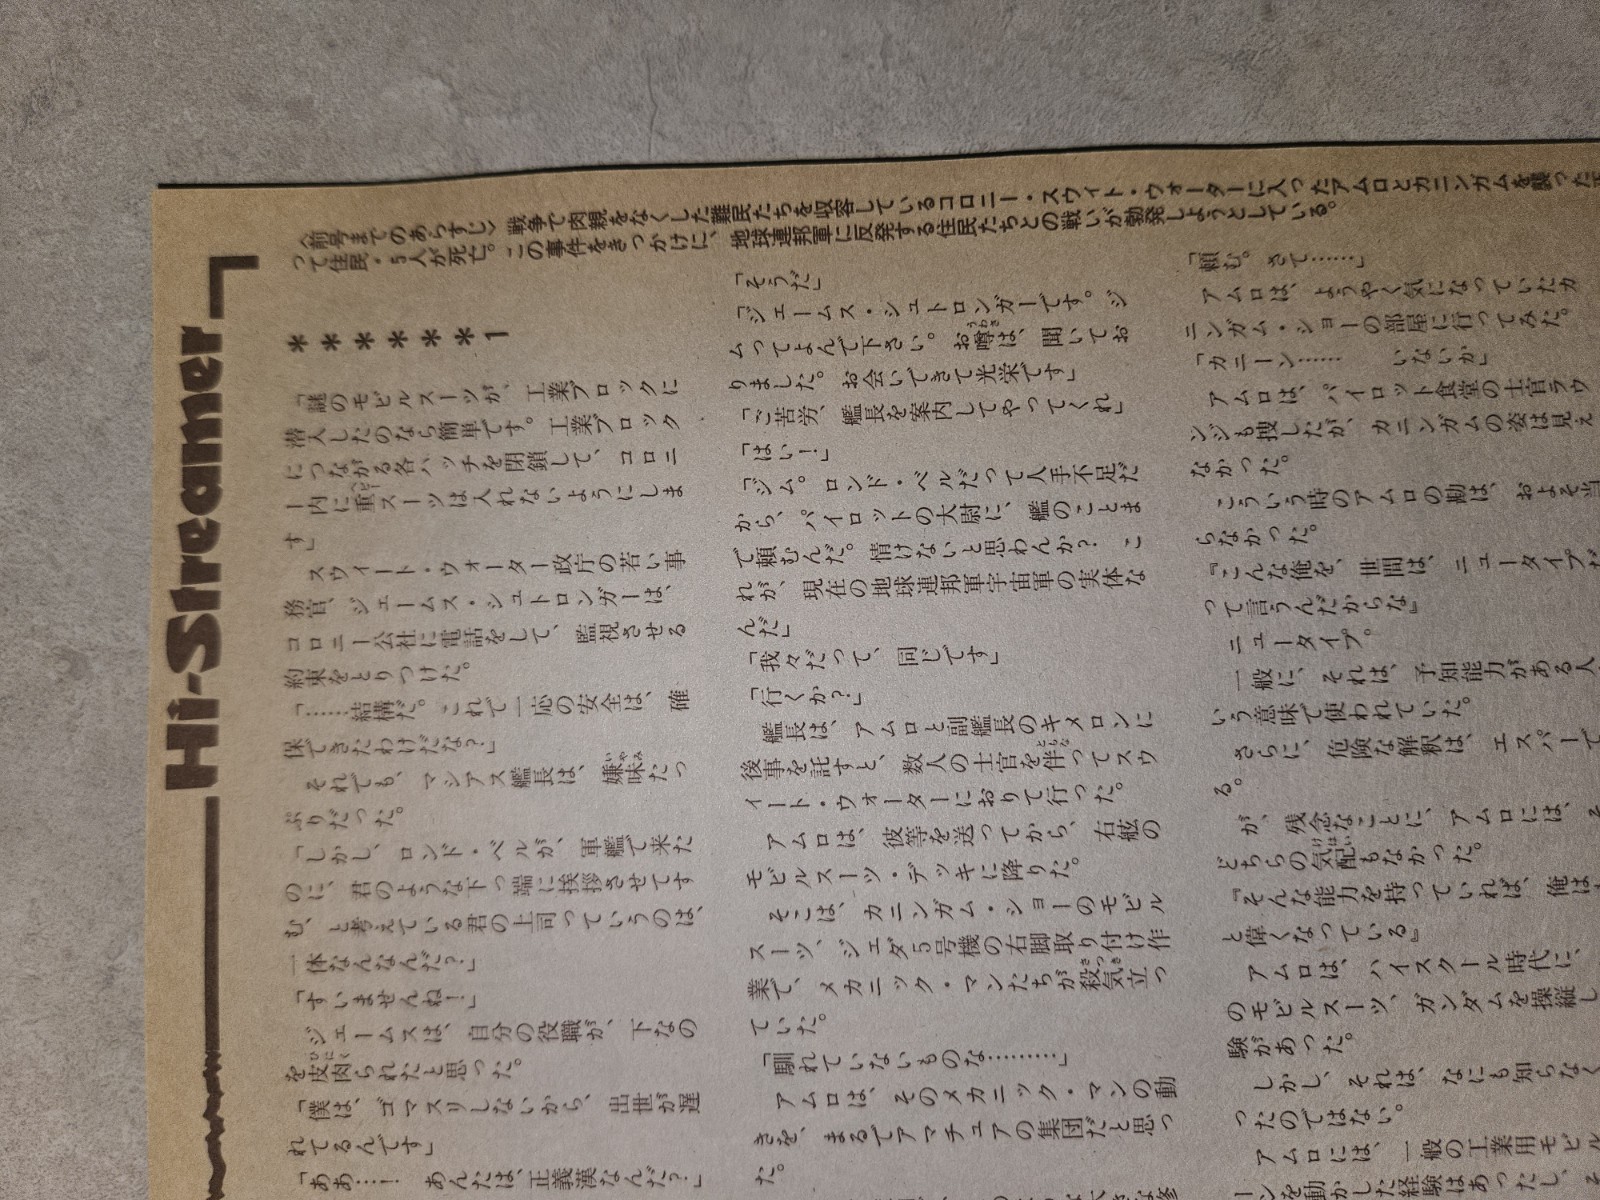 Hi-Streamer
〈前号までのあらすじ〉戦争で肉親をなくした難民たちを収容しているコロニー・スウィト・ウォーターに入ったアムロとカニンガムを襲った
って住民・5人が死亡。この事件をきっかけに、地球連邦軍に反発する住民たちとの戦いが勃発しようとしている。
＊＊＊＊＊＊1
「謎のモビルスーツが、工業ブロックに
潜入したのなら簡単です。工業ブロック
につながる各ハッチを閉鎖して、コロニ
ー内に重スーツは入れないようにしま
す」
スウィート・ウォーター政庁の若い事
務官、ジェームス・シュトロンガーは、
コロニー公社に電話をして、監視させる
約束をとりつけた。
「……結構だ。これで一応の安全は、確
保できたわけだな?」
それでも、マシアス艦長は、嫌味たっ
ぷりだった。
「しかし、ロンド・ベルが、軍艦で来た
のに、君のような下っ端に挨拶させてす
む、と考えている君の上司っていうのは、
一体なんなんだ?」
「すいませんね!」
ジェームスは、自分の役職が、下なの
を皮肉られたと思った。
「僕は、ゴマスリしないから、出世が遅
れてるんです」
「ああ…! あんたは、正義漢なんだ?」
「そうだ」
「ジェームス・シュトロンガーです。ジ
ムってよんで下さい。お噂は、聞いてお
りました。お会いできて光栄です」
「ご苦労、艦長を案内してやってくれ」
「はい!」
「ジム。ロンド・ベルだって人手不足だ
から、パイロットの大尉に、艦のことま
で頼むんだ。情けないと思わんか? こ
れが、現在の地球連邦軍宇宙軍の実体な
んだ」
「我々だって、同じです」
「行くか?」
艦長は、アムロと副艦長のキメロンに
後事を託すと、数人の士官を伴ってスウ
イート・ウォーターにおりて行った。
アムロは、彼等を送ってから、右舷の
モビルスーツ・デッキに降りた。
そこは、カニンガム・ショーのモビル
スーツ、ジェダ5号機の右脚取り付け作
業で、メカニック・マンたちが殺気立っ
ていた。
「馴れていないものな………」
アムロは、そのメカニック・マンの動
きを、まるでアマチュアの集団だと思っ
た。
「頼む。さて……」
アムロは、ようやく気になっていたカ
ニンガム・ショーの部屋に行ってみた。
「カニーン…… いないか」
アムロは、パイロット食堂の士官ラウ
ンジも捜したが、カニンガムの姿は見え
なかった。
こういう時のアムロの勘は、およそ当
らなかった。
『こんな俺を、世間は、ニュータイプだ
って言うんだからな』
ニュータイプ。
一般に、それは、予知能力がある人
いう意味で使われていた。
さらに、危険な解釈は、エスパーで
る。
が、残念なことに、アムロには、そ
どちらの気配もなかった。
『そんな能力を持っていれば、俺は
と偉くなっている』
アムロは、ハイスクール時代に、
のモビルスーツ、ガンダムを操縦し
験があった。
しかし、それは、なにも知らなく
ったのではない。
アムロには、一般の工業用モビル
ーンを動かした経験はあったし、そ